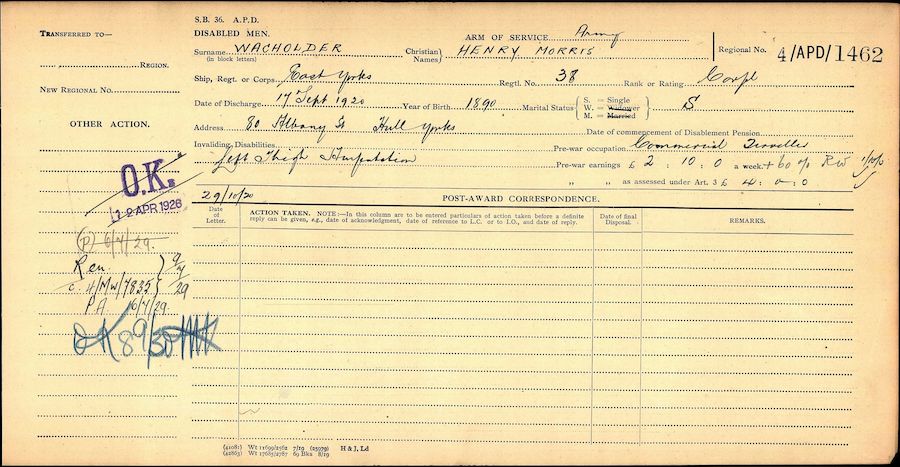 S.B. 36. A.P.D.
TRANSFERRED TO—
DISABLED MEN.
ARM OF SERVICE Army
Surname WACHOLDER
(in block letters)
Christian Names HENRY MORRIS
Regional No. 4/APD/1462
REGION.
Ship, Regt. or Corps. East Yorks
Regtl. No. 38
Rank or Rating. Corpl
NEW REGIONAL No.
Date of Discharge 17 Sept 1920
Year of Birth 1890
Marital Status
S. = Single
W. = Widower
M. = Married
S
OTHER ACTION.
Address 80 Albany St Hull Yorks
Date of commencement of Disablement Pension
Invaliding Disabilities
Left Thigh Amputation
Pre-war occupation Commercial Traveller
Pre-war earnings £ 2 : 10 : 0 a week. + 60 %
" " as assessed under Art. 3 £ 4 : 0 : 0
O.K.
12 APR 1926
29/10/20
POST-AWARD CORRESPONDENCE.
Date of Letter.
ACTION TAKEN. NOTE:—In this column are to be entered particulars of action taken before a definite reply can be given, e.g., date of acknowledgment, date of reference to L.C. or to I.O., and date of reply.
Date of final Disposal.
REMARKS.
(P) 6/7/29.
Ren 9/7/29
c 4/MW/7835
PA 16/7/29
OK 8 9/30
(41081) Wt 11699/2562 7/19 (25979)
(42863) Wt 17685/2787 69 Bks 8/19
H & J, Ld